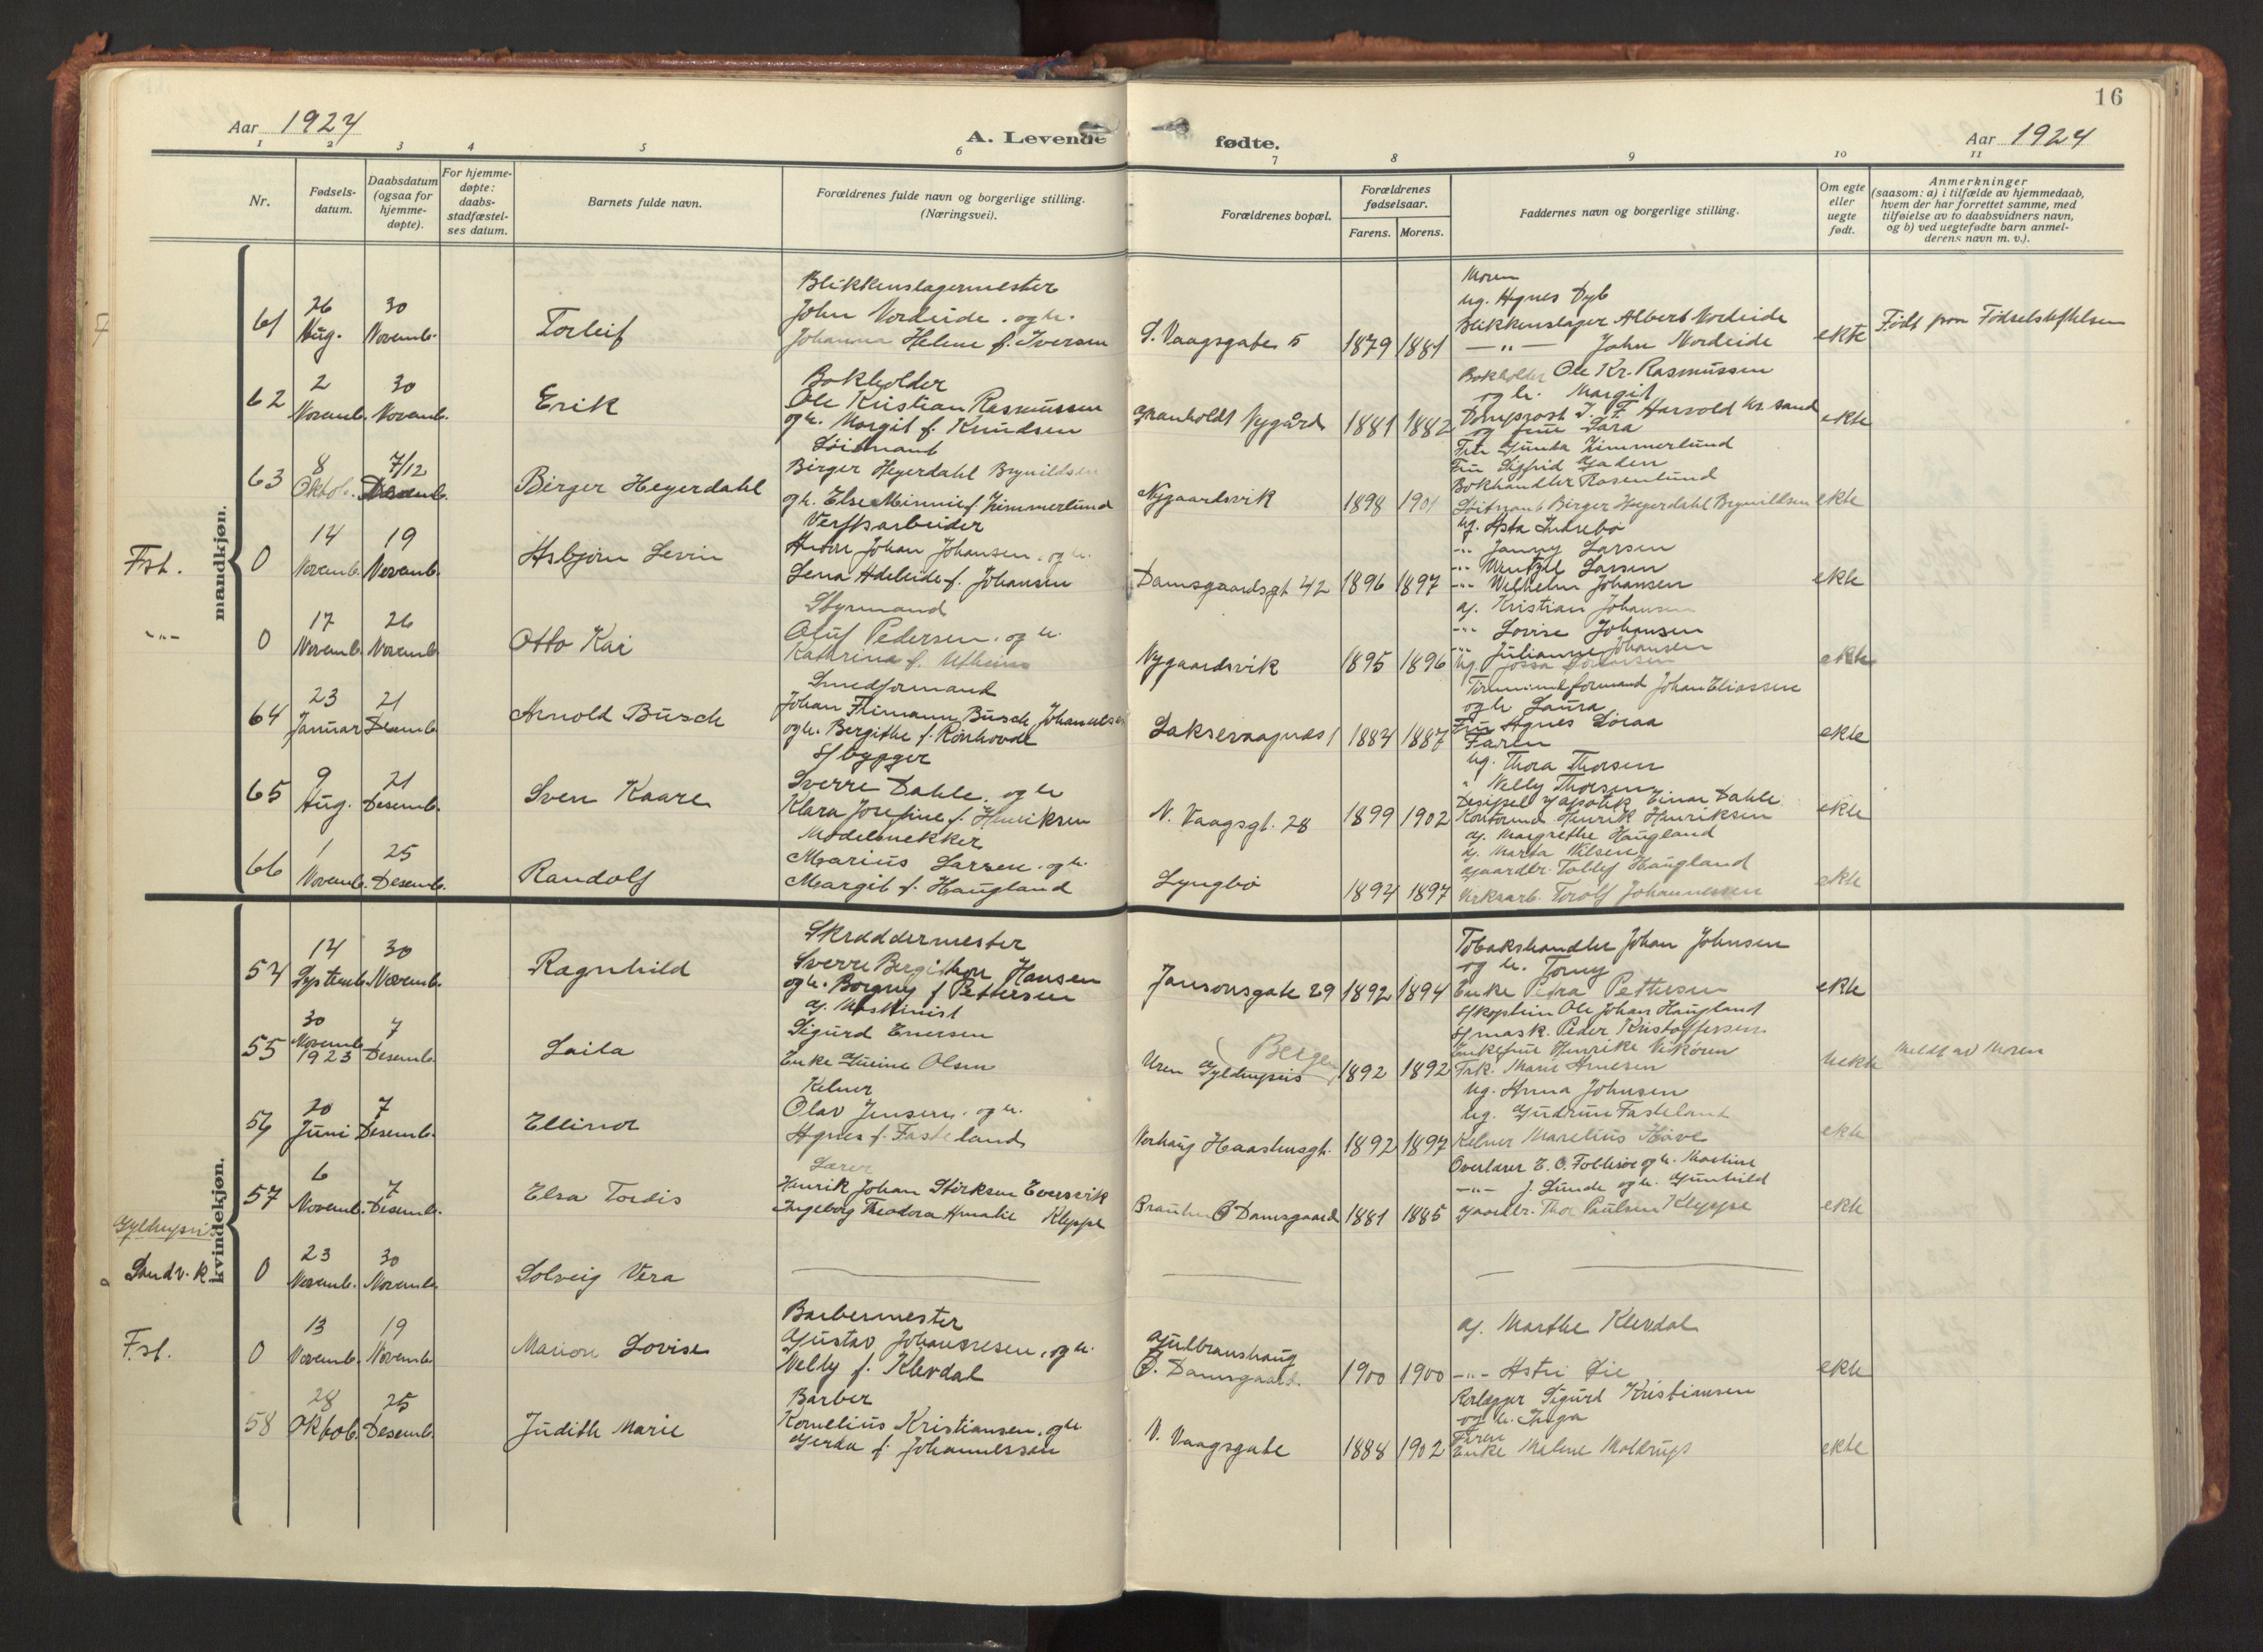 16
Aar 1924
A. Levende fødte.
Aar 1924
1 2 3 4 5 6 7 8 9 10 11
Nr.
Fødsels-
datum.
Daabsdatum
(ogsaa for
hjemme-
døpte).
For hjemme-
døpte:
daabs-
stadfæstel-
ses datum.
Barnets fulde navn.
Forældrenes fulde navn og borgerlige stilling.
(Næringsvei).
Forældrenes bopæl.
Forældrenes
fødselsaar.
Farens. Morens.
Faddernes navn og borgerlige stilling.
Om egte
eller
uegte
født.
Anmerkninger
(saasom: a) i tilfælde av hjemmedaab,
hvem der har forrettet samme, med
tilføielse av to daabsvidners navn,
og b) ved uegtefødte barn anmel-
derens navn m. v.).
mandkjøn.
61
26
Aug.
30
Novemb.
Torleif
Blikkenslagermester
John Nordeide. og h.
Johanna Helene f. Iversen
S. Vaagsgate 5
1879 1881
Moren
ug. Agnes Dyb
Blikkenslager Albert Nordeide
—"— John Nordeide
ekte
Født paa Fødselsstiftelsen
62
2
Novemb.
30
Novemb.
Erik
Bokholder
Ole Kristian Rasmussen
og h. Margit f. Knudsen
Granholdt Nygård
1881 1882
Bokholder Ole Kr. Rasmussen
og h. Margit
Domprost I. F. Harvold Kr. sand
og frue Sara
ekte
63
8
Oktob.
7/12
Desemb.
Birger Heyerdahl
Løitnant
Birger Heyerdahl Brynildsen
og h. Else Minnie f. Zimmerlund
Nygaardsvik
1898 1901
Fru Gunda Zimmerlund
Fru Sigfrid Gaden
Bokhandler Rosenlund
Løitnant Birger Heyerdahl Brynildsen
ekte
Fst.
0
14
Novemb.
19
Novemb.
Asbjørn Levin
Verftsarbeider
Andor Johan Johansen. og h.
Lena Adeleide f. Johansen
Damsgaardsgt 42
1896 1897
ug. Asta Indrebø
-"- Janny Larsen
-"- Wentzel Larsen
-"- Wilhelm Johansen
ekte
-"-
0
17
Novemb.
26
Novemb.
Otto Kai
Styrmand
Oluf Pedersen. og h.
Kathrine f.
Nygaardsvik
1895 1896
g. Kristian Johansen
-"- Lovise Johansen
-"- Julianne Johansen
ug.
ekte
64
23
Januar
21
Desemb.
Arnold Busch
Smedformand
Johan Busch Johannesen
og h. Bergithe f. Rønhovde
Laksevaagnes 1
1884 1887
Tømmermandformand Johan Eliassen
og h Laura
Fru Agnes Loraa
Faren
ekte
65
9
Aug.
21
Desemb.
Sven Kaare
S/bygger
Sverre Dahle. og h
Klara Josefine f. Henriksen
N. Vaagsgt. 28
1899 1902
ug. Thora Thorsen
" Nelly Thorsen
Desippel Japotek Einar Dahle
Kontormd Henrik Henriksen
ekte
66
1
Novemb.
25
Desemb.
Randolf
Modelsnekker
Marius Larsen. og h.
Margit f. Haugland
Lyngbø
1894 1897
g. Margrethe Haugland
g. Marta Nilsen
Gaardbr. Tollef Haugland
Verksarb. Torolf Johannessen
ekte
kvindekjøn.
54
14
Septemb.
30
Novemb.
Ragnhild
Skræddermester
Sverre Bergithon Hansen
og h. Borgny f Pettersen
Jansonsgate 29
1892 1894
Tobakshandler Johan Johnsen
og h. Tomy
Enke Petra Pettersen
S/kaptein Ole Johan Haugland
ekte
55
30
Novemb.
1923
7
Desemb.
Laila
g. Maskinist
Sigurd Enersen
Enke Olsen
Uren Gyldenpris (Bergen
1892 1892
S/mask. Peder Kristoffersen
Enkefrue Henrikke Vikøren
Frk. Marie Arnesen
Uekte
Meldt av Moren
56
20
Juni
7
Desemb.
Ellinor
Kelner
Olav Jensen. og h.
Agnes f. Fasteland
Norhaug Haastensgt.
1892 1897
ug. Anna Johnsen
ug. Gudrun Fasteland
Kelner Marelius Hove
ekte
57
6
Novemb.
7
Desemb.
Elsa Tordis
Lærer
Henrik Johan Stirksen Eversvik
Ingeborg Theodora Amalie Kleppe
Ø Damsgaard
1881 1885
Overlærer E. O. Follesøe og h. Martine
—"— J. Lunde og h. Gunhild
Gaardbr. Thor Paulsen Kleppe
ekte
Gyldenpris
Sandv. k
0
23
Novemb.
30
Novemb.
Solveig Vera
Fst.
0
13
Novemb.
19
Novemb.
Marion Lovise
Barbermester
Gustav Johannesen. og h.
Nelly f. Klevdal
Gulbranshaug
Ø. Damsgaard.
1900 1900
g. Marthe Klevdal
-"- Astri Lie
ekte
58
28
Oktob.
25
Desemb.
Judith Marie
Barber
Kornelius Kristiansen. og h
Gerda f. Johannessen
N. Vaagsgate
1888 1902
Rørlægger Sigurd Kristiansen
og h. Inga
Faren
Enke Malene Moldrup
ekte